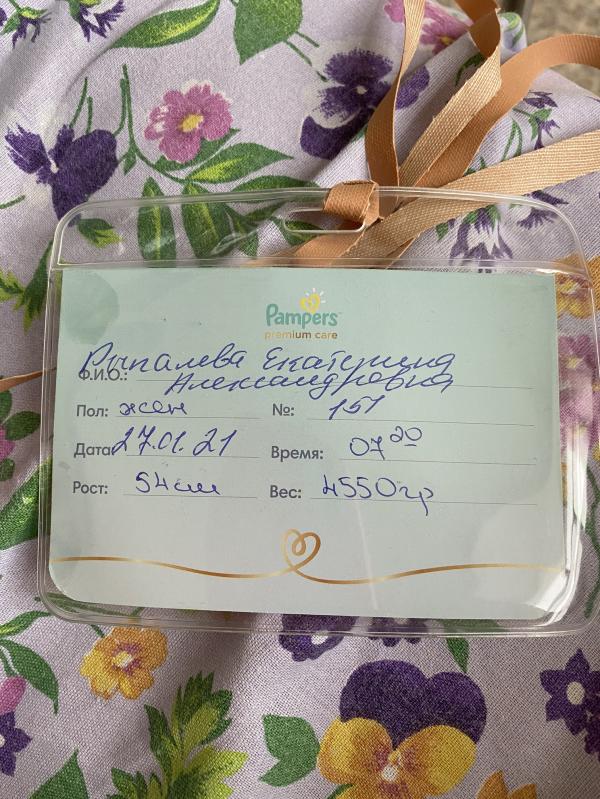 Pampers
premium care
Ф.И.О.: Рыпалева Екатерина
Александровна
Пол: жен №: 151
Дата 27.01.21 Время: 07 20
Рост: 54 см Вес: 4550 гр